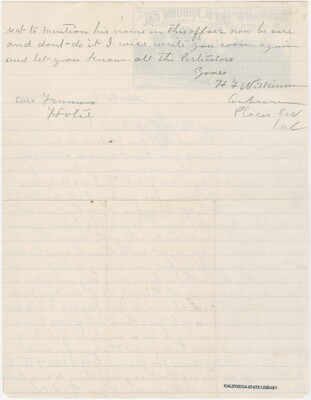 not to mention his name in this affair now be sure
and dont do it I will write you soon again
and let you know all the Particulars
Yours
H
Care
Hotel
Auburn
Placer Co
Cal
CALIFORNIA STATE LIBRARY